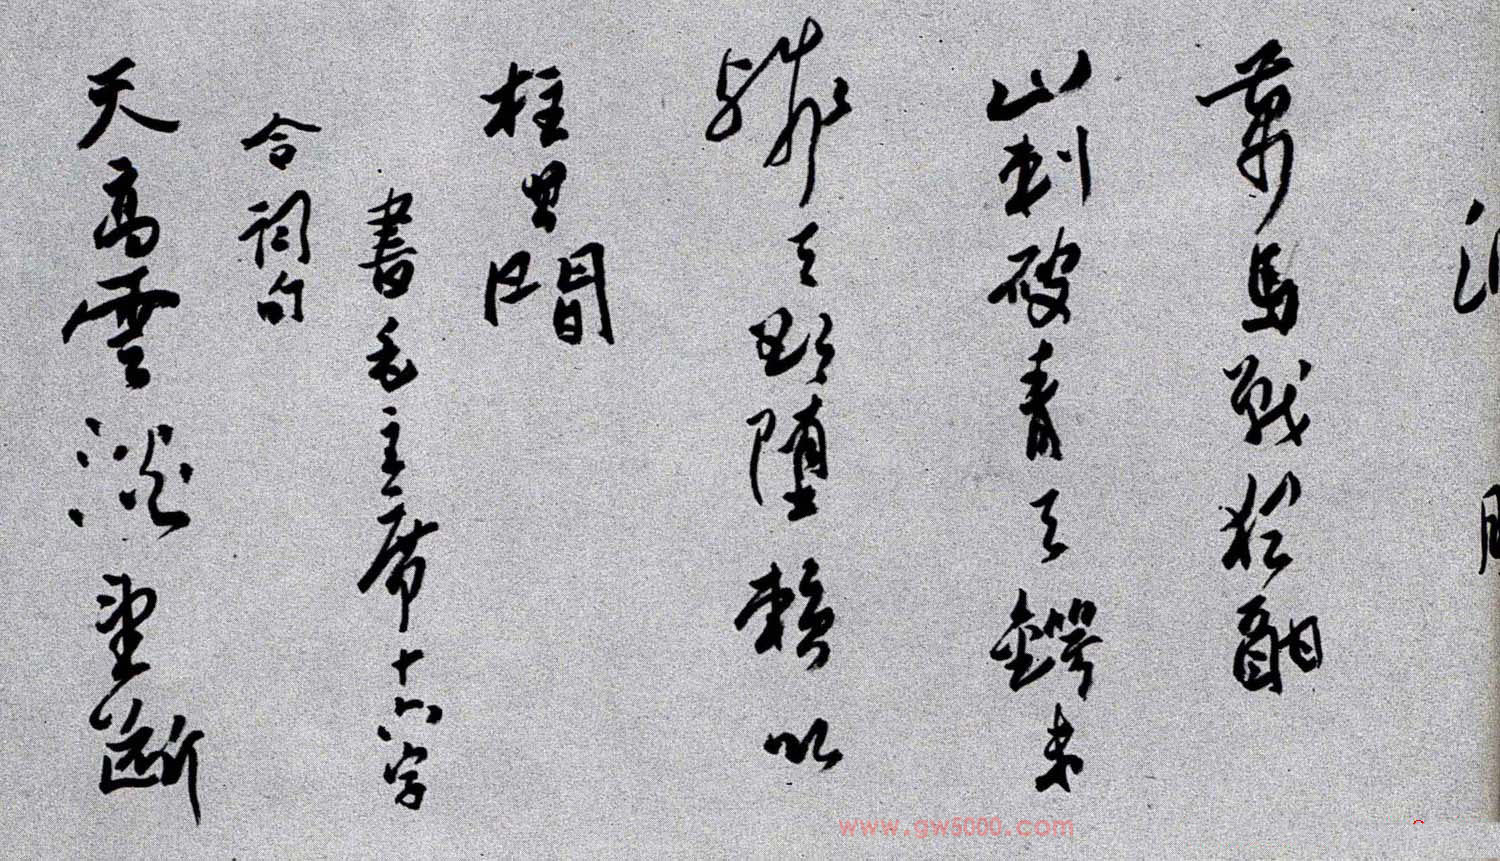 萬馬戰猶酣
山刺破青天鍔未
殘天欲墮賴以
柱其間
書毛主席十六字
令詞句
天高雲淡望斷
www.gw5000.com